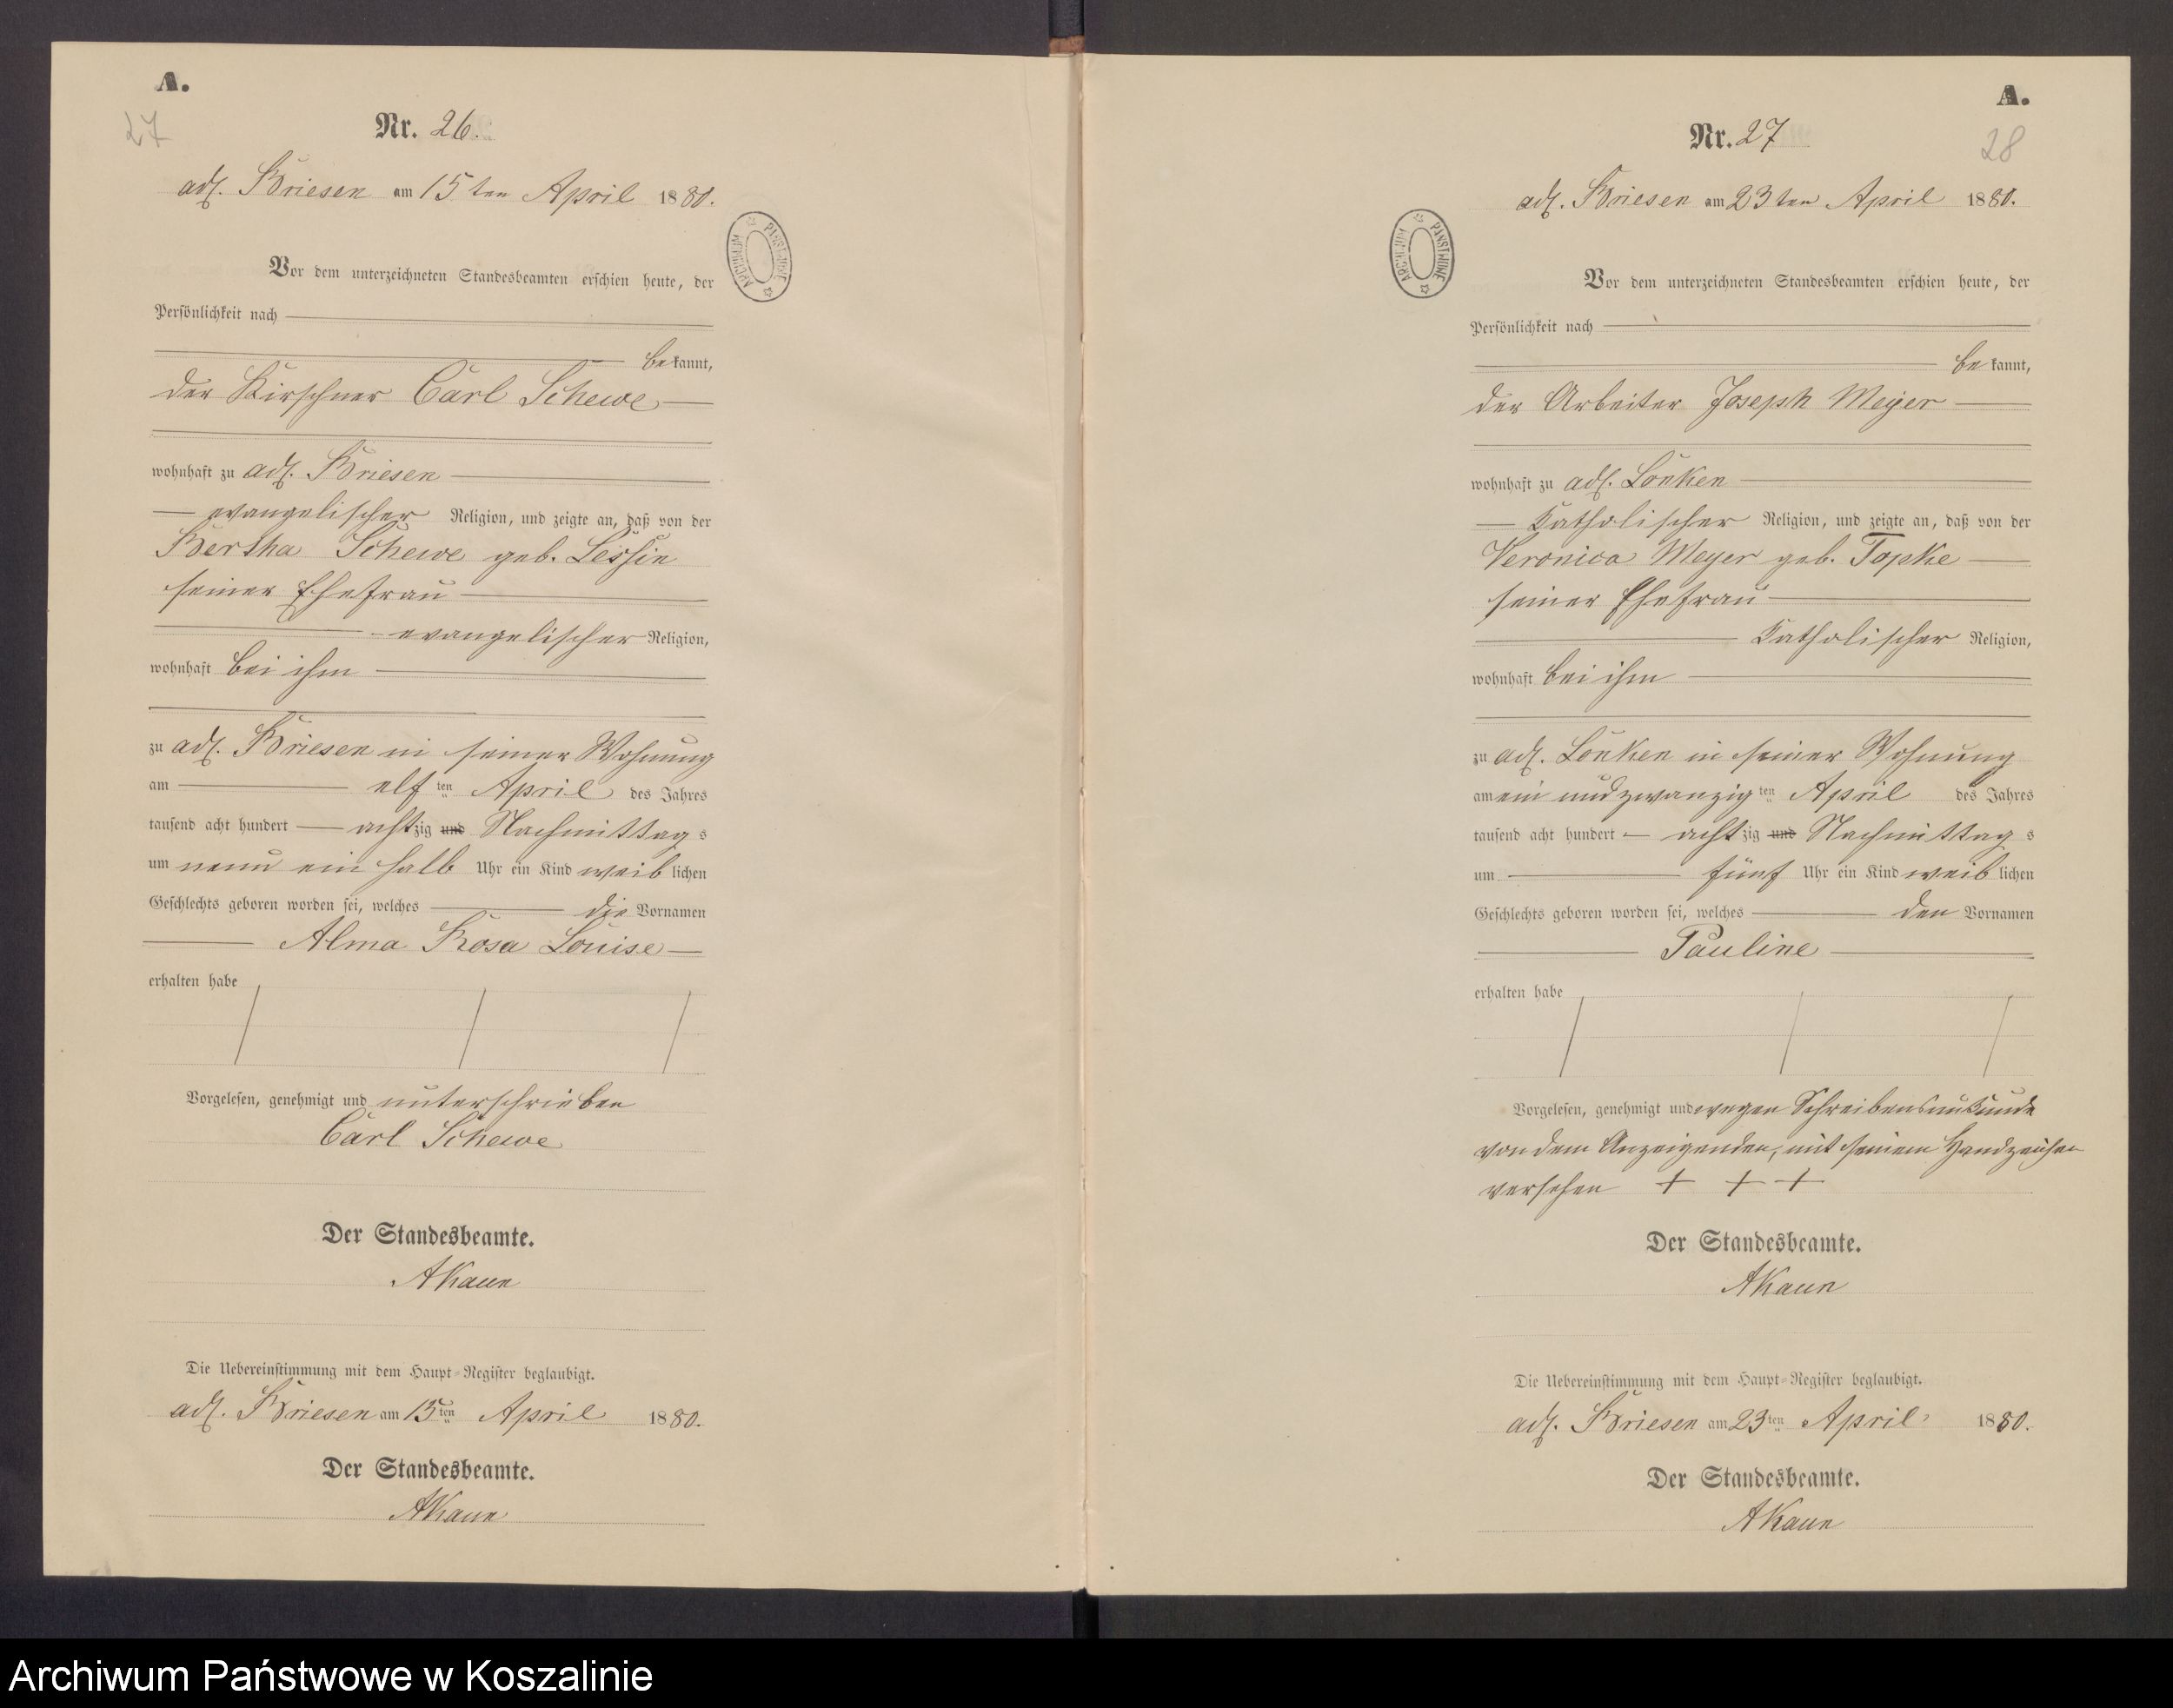 A.
27
Nr. 26.
adl. Briesen am 15ten April 1880.
ARCHIWUM PAŃSTWOWE
Vor dem unterzeichneten Standesbeamten erschien heute, der
Persönlichkeit nach
bekannt,
der Kirschner Carl Schewe
wohnhaft zu adl. Briesen
evangelischer Religion, und zeigte an, daß von der
Bertha Schewe geb. Lessin
seiner Ehefrau
evangelischer Religion,
wohnhaft bei ihm
zu adl. Briesen in seiner Wohnung
am elf ten April des Jahres
tausend acht hundert achtzig und Nachmittags
um neun ein halb Uhr ein Kind weiblichen
Geschlechts geboren worden sei, welches die Vornamen
Alma Rosa Louise
erhalten habe
Vorgelesen, genehmigt und unterschrieben
Carl Schewe
Der Standesbeamte.
AKaun
Die Uebereinstimmung mit dem Haupt-Register beglaubigt.
adl. Briesen am 15ten April 1880.
Der Standesbeamte.
AKaun
A.
28
Nr. 27
adl. Briesen am 23ten April 1880.
ARCHIWUM PAŃSTWOWE
Vor dem unterzeichneten Standesbeamten erschien heute, der
Persönlichkeit nach
bekannt,
der Arbeiter Joseph Meyer
wohnhaft zu adl. Lonken
Katholischer Religion, und zeigte an, daß von der
Veronica Meyer geb. Topke
seiner Ehefrau
Katholischer Religion,
wohnhaft bei ihm
zu adl. Lonken in seiner Wohnung
am ein und zwanzig ten April des Jahres
tausend acht hundert achtzig und Nachmittags
um fünf Uhr ein Kind weiblichen
Geschlechts geboren worden sei, welches den Vornamen
Pauline
erhalten habe
Vorgelesen, genehmigt und wegen Schreibensunkunde
von dem Anzeigenden, mit seinem Handzeichen
versehen + + +
Der Standesbeamte.
AKaun
Die Uebereinstimmung mit dem Haupt-Register beglaubigt.
adl. Briesen am 23ten April 1880.
Der Standesbeamte.
AKaun
Archiwum Państwowe w Koszalinie